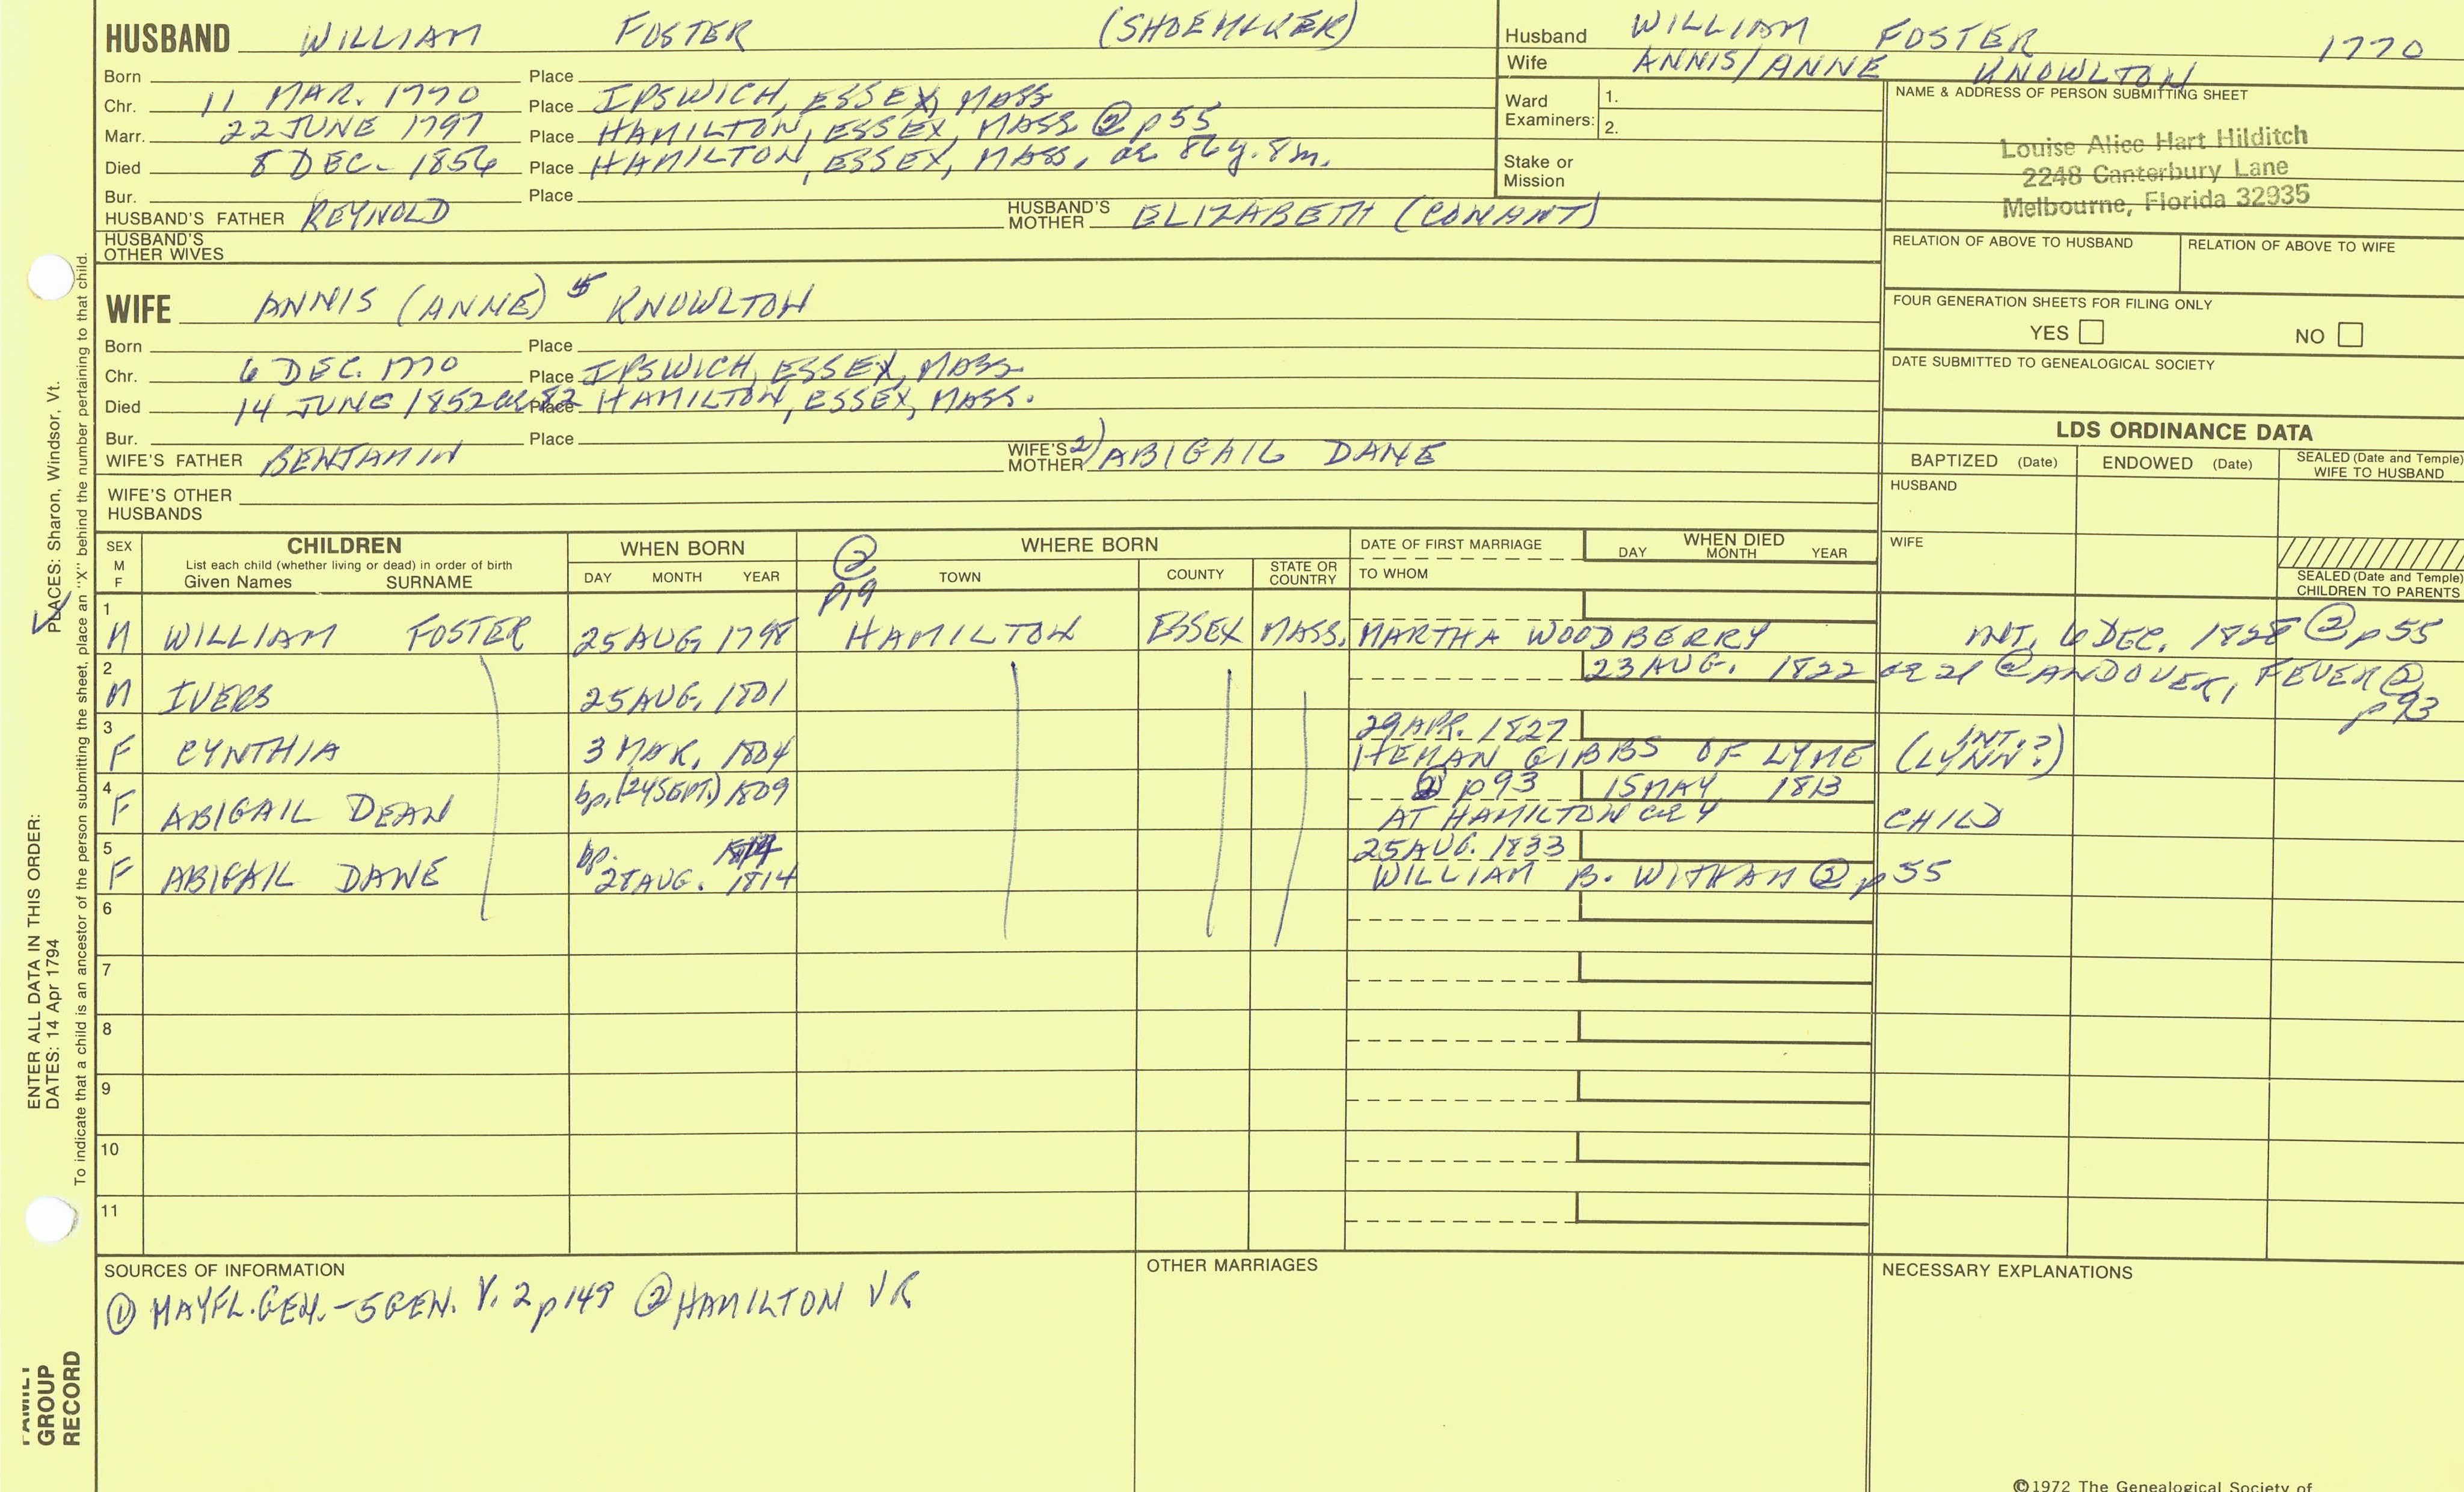 HUSBAND WILLIAM FOSTER (SHOEMAKER)
Born Place
Chr. 11 MAR. 1770 Place IPSWICH, ESSEX, MASS
Marr. 22 JUNE 1797 Place HAMILTON, ESSEX, MASS ② p55
Died 8 DEC. 1856 Place HAMILTON, ESSEX, MASS, ae 86y. 8m.
Bur. Place
HUSBAND'S FATHER REYNOLD HUSBAND'S MOTHER ELIZABETH (CONANT)
HUSBAND'S OTHER WIVES
Husband WILLIAM FOSTER 1770
Wife ANNIS/ANNE KNOWLTON
Ward Examiners: 1.
2.
Stake or Mission
NAME & ADDRESS OF PERSON SUBMITTING SHEET
Louise Alice Hart Hilditch
2248 Canterbury Lane
Melbourne, Florida 32935
RELATION OF ABOVE TO HUSBAND RELATION OF ABOVE TO WIFE
FOUR GENERATION SHEETS FOR FILING ONLY
YES NO
DATE SUBMITTED TO GENEALOGICAL SOCIETY
WIFE ANNIS (ANNE) 5 KNOWLTON
Born Place
Chr. 6 DEC. 1770 Place IPSWICH, ESSEX, MASS.
Died 14 JUNE 1852 ae 82 Place HAMILTON, ESSEX, MASS.
Bur. Place
WIFE'S FATHER BENJAMIN WIFE'S MOTHER 2) ABIGAIL DANE
WIFE'S OTHER HUSBANDS
LDS ORDINANCE DATA
BAPTIZED (Date) ENDOWED (Date) SEALED (Date and Temple) WIFE TO HUSBAND
HUSBAND
WIFE
SEALED (Date and Temple) CHILDREN TO PARENTS
SEX M F CHILDREN WHEN BORN ② p19 WHERE BORN DATE OF FIRST MARRIAGE WHEN DIED
List each child (whether living or dead) in order of birth
Given Names SURNAME DAY MONTH YEAR TOWN COUNTY STATE OR COUNTRY TO WHOM DAY MONTH YEAR
1 M WILLIAM FOSTER 25 AUG 1798 HAMILTON ESSEX MASS. MARTHA WOODBERRY INT. 6 DEC. 1828 ② p55
2 M IVERS 25 AUG. 1801 23 AUG. 1822 ae 21 @ ANDOVER, FEVER ② p93
3 F CYNTHIA 3 MAR. 1804 29 APR. 1827 INT.?
HEMAN GIBBS OF LYME (LYNN?)
4 F ABIGAIL DEAN bp. (24 SEPT.) 1809 ② p93 15 MAY 1813
AT HAMILTON ae 4 CHILD
5 F ABIGAIL DANE bp. 28 AUG. 1814 25 AUG. 1833
WILLIAM B. WITHAM ② p55
6
7
8
9
10
11
SOURCES OF INFORMATION
① MAYFL. GEN. - 5 GEN. V. 2 p149 ② HAMILTON VR
OTHER MARRIAGES
NECESSARY EXPLANATIONS
©1972 The Genealogical Society of
ENTER ALL DATA IN THIS ORDER:
DATES: 14 Apr 1794
PLACES: Sharon, Windsor, Vt.
To indicate that a child is an ancestor of the person submitting the sheet, place an "X" behind the number pertaining to that child.
FAMILY
GROUP
RECORD